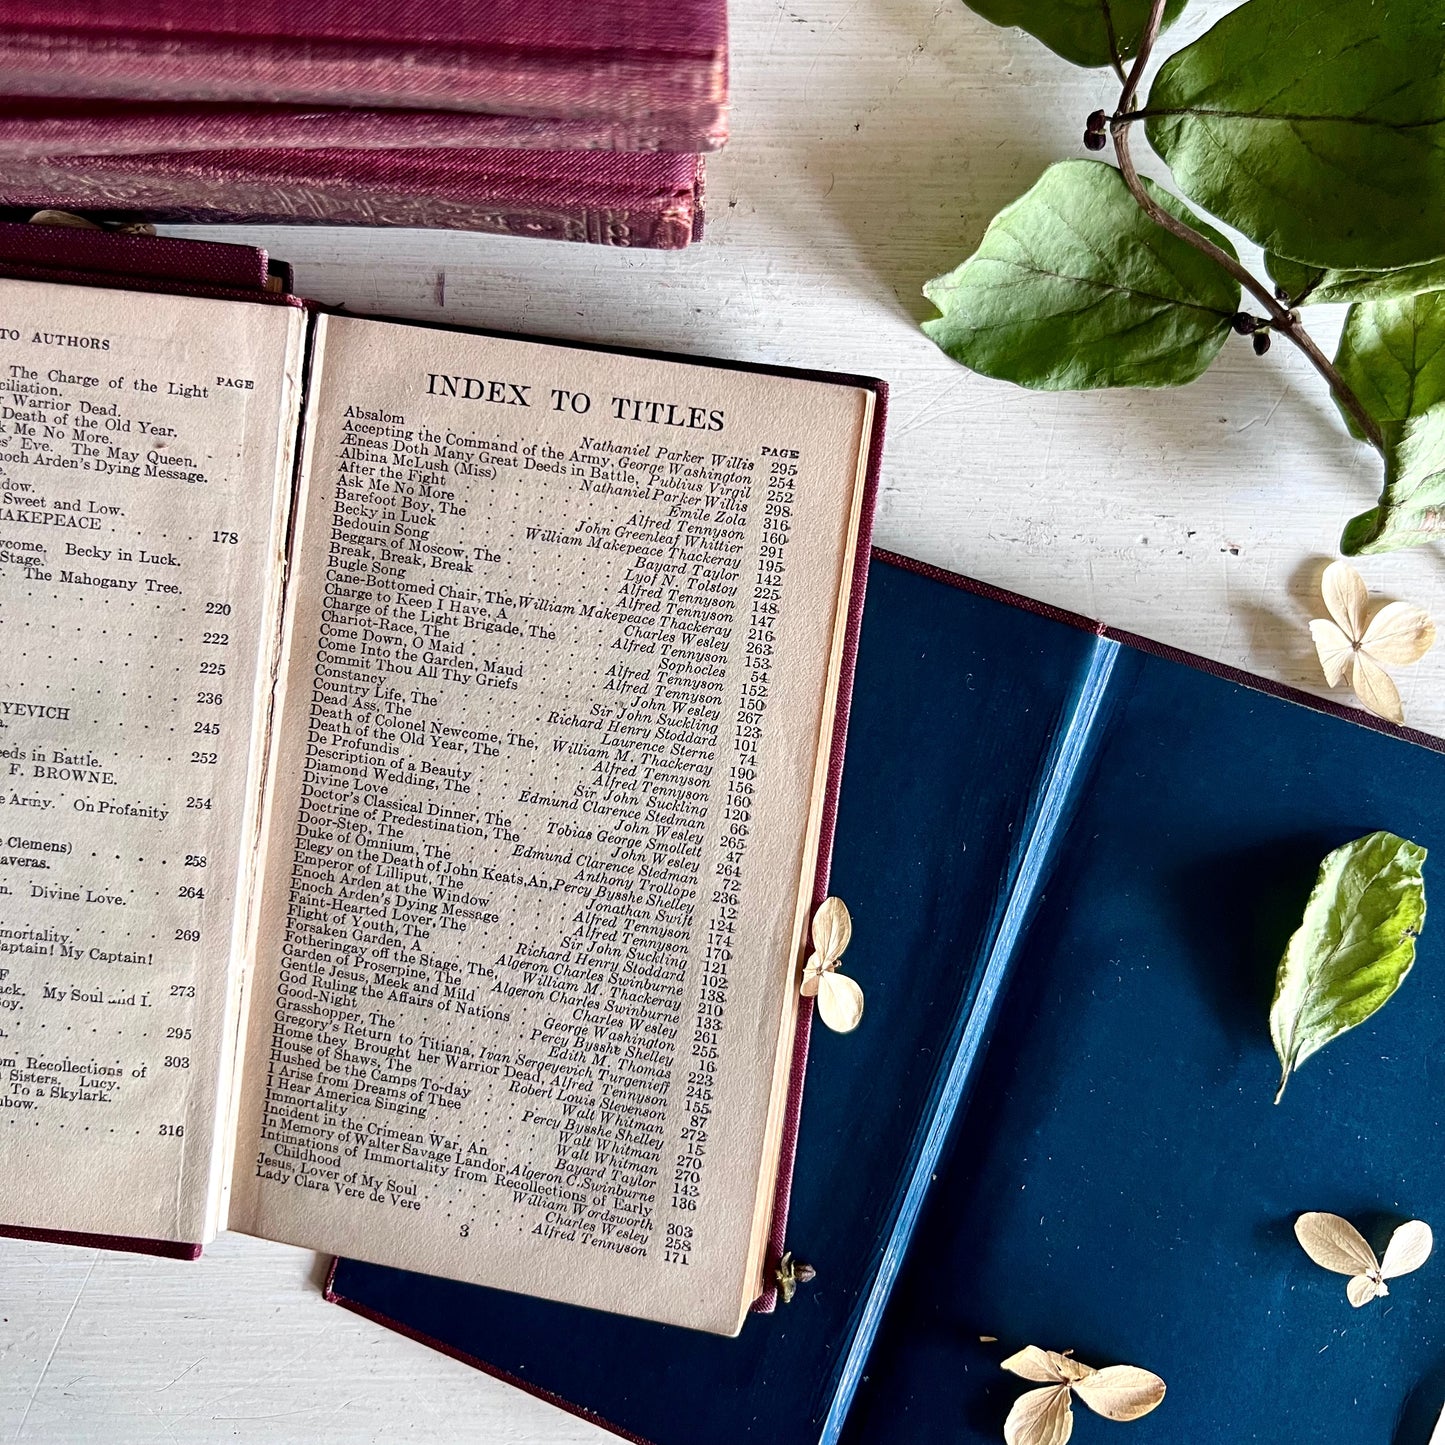 TO AUTHORS
PAGE
The Charge of the Light
ciliation.
Warrior Dead.
Death of the Old Year.
k Me No More.
es' Eve. The May Queen.
noch Arden's Dying Message.
e.
ndow.
Sweet and Low.
MAKEPEACE . . . . . 178
wcome. Becky in Luck.
Stage.
The Mahogany Tree.
220
222
225
236
EYEVICH . . . . . 245
a.
eeds in Battle. 252
F. BROWNE.
254
e Army. On Profanity
e Clemens) . . . . . 258
averas.
264
n. Divine Love.
269
mortality.
aptain! My Captain!
F
273
ack. My Soul and I.
oy.
295
303
om Recollections of
Sisters. Lucy.
To a Skylark.
nbow.
316
INDEX TO TITLES
PAGE
Absalom . . . . . Nathaniel Parker Willis 295
Accepting the Command of the Army, George Washington 254
Æneas Doth Many Great Deeds in Battle, Publius Virgil 252
Albina McLush (Miss) . . Nathaniel Parker Willis 298
After the Fight . . . . . Émile Zola 316
Ask Me No More . . . . . Alfred Tennyson 160
Barefoot Boy, The . . . John Greenleaf Whittier 291
Becky in Luck . . William Makepeace Thackeray 195
Bedouin Song . . . . . Bayard Taylor 142
Beggars of Moscow, The . . . Lyof N. Tolstoy 225
Break, Break, Break . . . . Alfred Tennyson 148
Bugle Song . . . . . Alfred Tennyson 147
Cane-Bottomed Chair, The, William Makepeace Thackeray 216
Charge to Keep I Have, A . . . Charles Wesley 263
Charge of the Light Brigade, The . . Alfred Tennyson 153
Chariot-Race, The . . . . . Sophocles 54
Come Down, O Maid . . . . Alfred Tennyson 152
Come Into the Garden, Maud . . Alfred Tennyson 150
Commit Thou All Thy Griefs . . . John Wesley 267
Constancy . . . . . Sir John Suckling 123
Country Life, The . . . Richard Henry Stoddard 101
Dead Ass, The . . . . . Laurence Sterne 74
Death of Colonel Newcome, The, William M. Thackeray 190
Death of the Old Year, The . . . Alfred Tennyson 156
De Profundis . . . . . Alfred Tennyson 160
Description of a Beauty . . . Sir John Suckling 120
Diamond Wedding, The . . Edmund Clarence Stedman 66
Divine Love . . . . . John Wesley 265
Doctor's Classical Dinner, The . Tobias George Smollett 47
Doctrine of Predestination, The . . John Wesley 264
Door-Step, The . . . Edmund Clarence Stedman 72
Duke of Omnium, The . . . Anthony Trollope 236
Elegy on the Death of John Keats, An, Percy Bysshe Shelley 12
Emperor of Lilliput, The . . . Jonathan Swift 124
Enoch Arden at the Window . . Alfred Tennyson 174
Enoch Arden's Dying Message . . Alfred Tennyson 170
Faint-Hearted Lover, The . . . Sir John Suckling 121
Flight of Youth, The . . Richard Henry Stoddard 102
Forsaken Garden, A . . Algeron Charles Swinburne 138
Fotheringay off the Stage, The, William M. Thackeray 210
Garden of Proserpine, The . Algeron Charles Swinburne 133
Gentle Jesus, Meek and Mild . . Charles Wesley 261
God Ruling the Affairs of Nations . George Washington 255
Good-Night . . . . . Percy Bysshe Shelley 16
Grasshopper, The . . . . Edith M. Thomas 223
Gregory's Return to Titiana, Ivan Sergeyevich Turgenieff 245
Home they Brought her Warrior Dead, Alfred Tennyson 155
House of Shaws, The . . . Robert Louis Stevenson 87
Hushed be the Camps To-day . . Walt Whitman 272
I Arise from Dreams of Thee . Percy Bysshe Shelley 15
I Hear America Singing . . . Walt Whitman 270
Immortality . . . . . Walt Whitman 270
Incident in the Crimean War, An . . Bayard Taylor 143
In Memory of Walter Savage Landor, Algeron C. Swinburne 136
Intimations of Immortality from Recollections of Early
Childhood . . . . . William Wordsworth 303
Jesus, Lover of My Soul . . . Charles Wesley 258
Lady Clara Vere de Vere . . . Alfred Tennyson 171
3